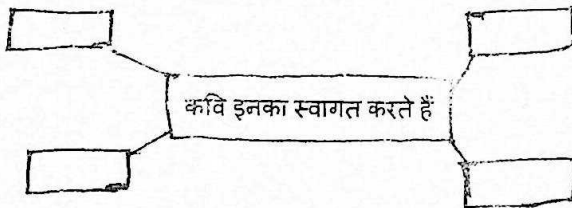 कवि इनका स्वागत करते हैं